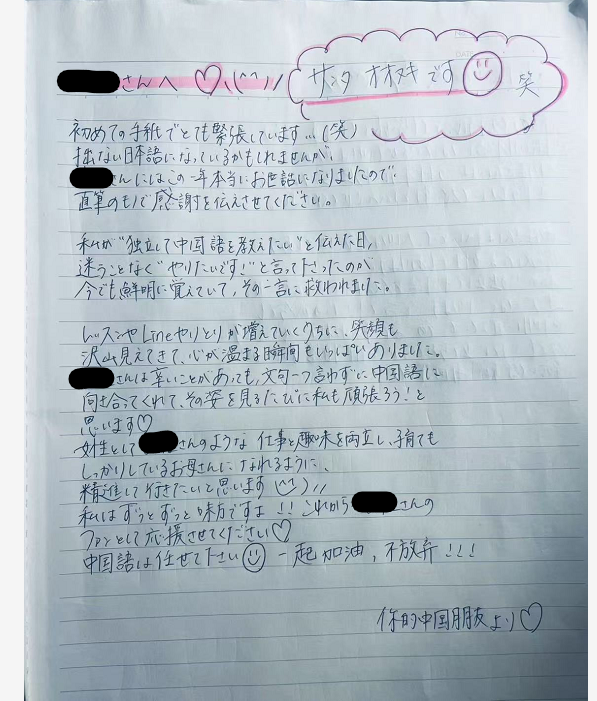 さんへ ♡ (^^)//
サンタ オオヌキ です ☺ 笑
初めての手紙でとても緊張しています…(笑)
拙ない日本語になっているかもしれませんが、
さんにはこの一年本当にお世話になりましたので、
直筆のもので感謝を伝えさせてください。
私が"独立して中国語を教えたい"と伝えた日、
迷うことなく"やりたいです!"と言って下さったのが
今でも鮮明に覚えていて、その一言に救われました。
レッスンやLineやりとりが増えていくうちに、笑顔も
沢山見えてきて、心が温まる瞬間もいっぱいありました。
さんは辛いことがあっても、文句一つ言わずに中国語に
向き合ってくれて、その姿を見るたびに私も頑張ろう!と
思います♡
女性として さんのような 仕事と趣味を両立し、子育ても
しっかりしているお母さんになれるように、
精進して行きたいと思います (^^)//
私はずっとずっと味方ですよ!! これから さんの
ファンとして応援させてください♡
中国語は任せて下さい☺ 一起加油，不放弃!!!
你的中国朋友より♡